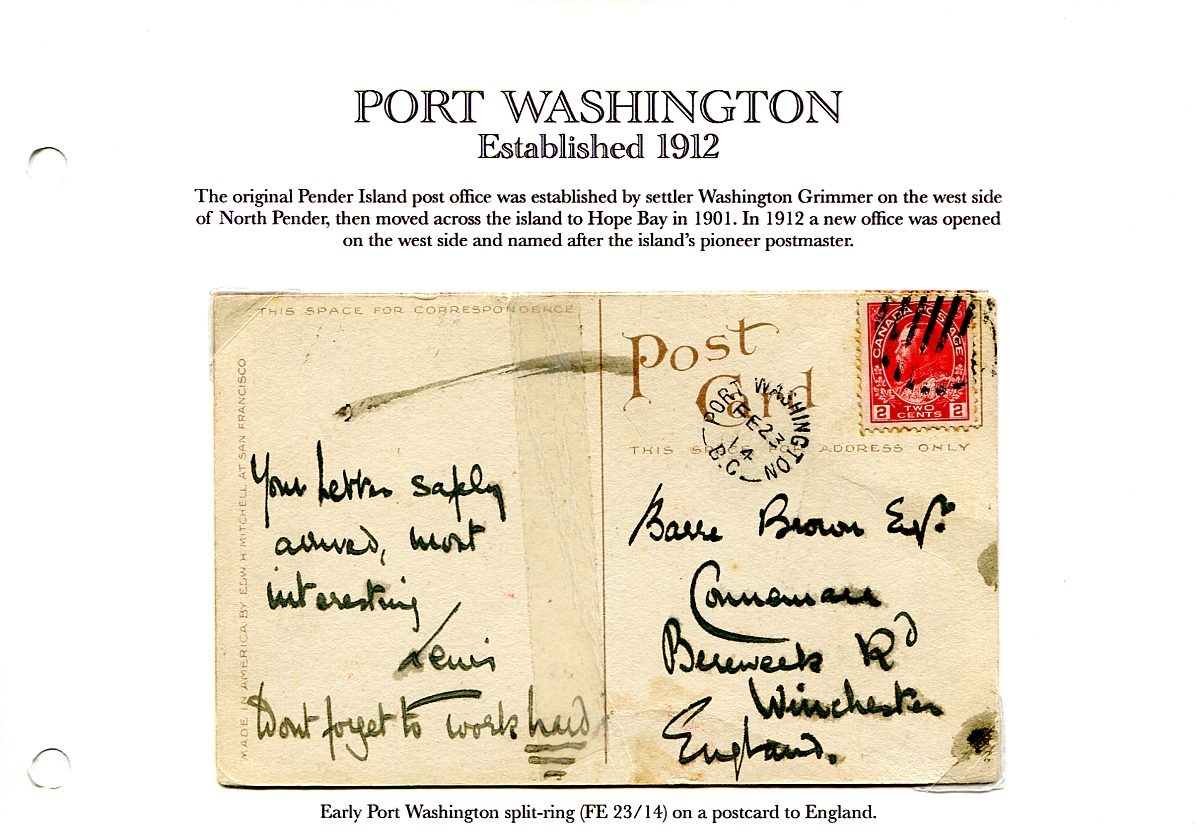 PORT WASHINGTON
Established 1912
The original Pender Island post office was established by settler Washington Grimmer on the west side
of North Pender, then moved across the island to Hope Bay in 1901. In 1912 a new office was opened
on the west side and named after the island's pioneer postmaster.
THIS SPACE FOR CORRESPONDENCE
MADE IN AMERICA BY EDW H MITCHELL AT SAN FRANCISCO
Your letter safely
arrived, most
interesting
Lewis
Dont forget to work hard
Post
Card
THIS SPACE FOR ADDRESS ONLY
PORT WASHINGTON
FE 23
14
B.C.
CANADA POSTAGE
2 TWO CENTS 2
Barre Brown Esqr.
Connemara
Bereweek Rd
Winchester
England.
Early Port Washington split-ring (FE 23/14) on a postcard to England.